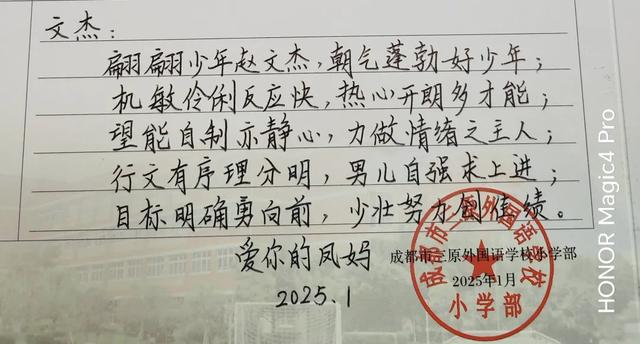 文杰：
翩翩少年赵文杰，朝气蓬勃好少年；
机敏伶俐反应快，热心开朗多才能；
望能自制亦静心，力做情绪之主人；
行文有序理分明，男儿自强求上进；
目标明确勇向前，少壮努力创佳绩。
爱你的凤妈
2025.1
成都市三原外国语学校小学部
2025年1月
成都市三原外国语学校
小学部
HONOR Magic4 Pro